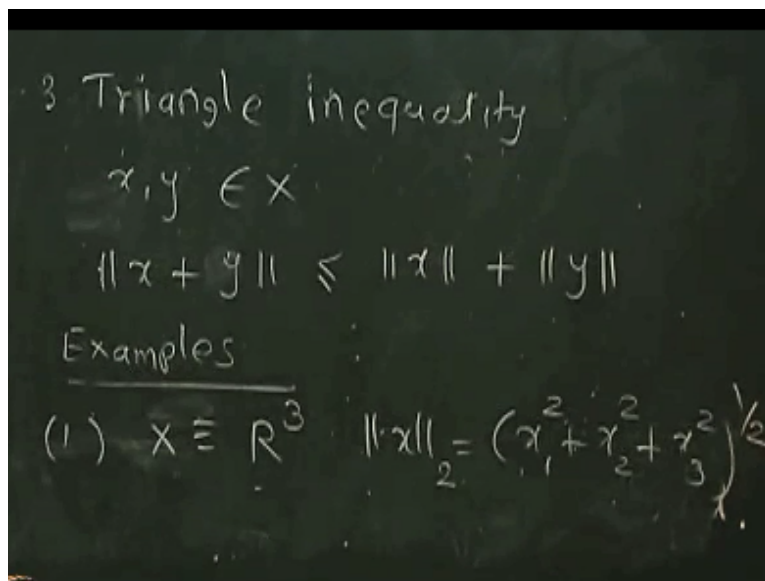 3 Triangle inequality
x, y ∈ X
||x + y|| ≤ ||x|| + ||y||
Examples
(1) X ≡ R³ ||x||₂ = (x₁² + x₂² + x₃²)^1/2